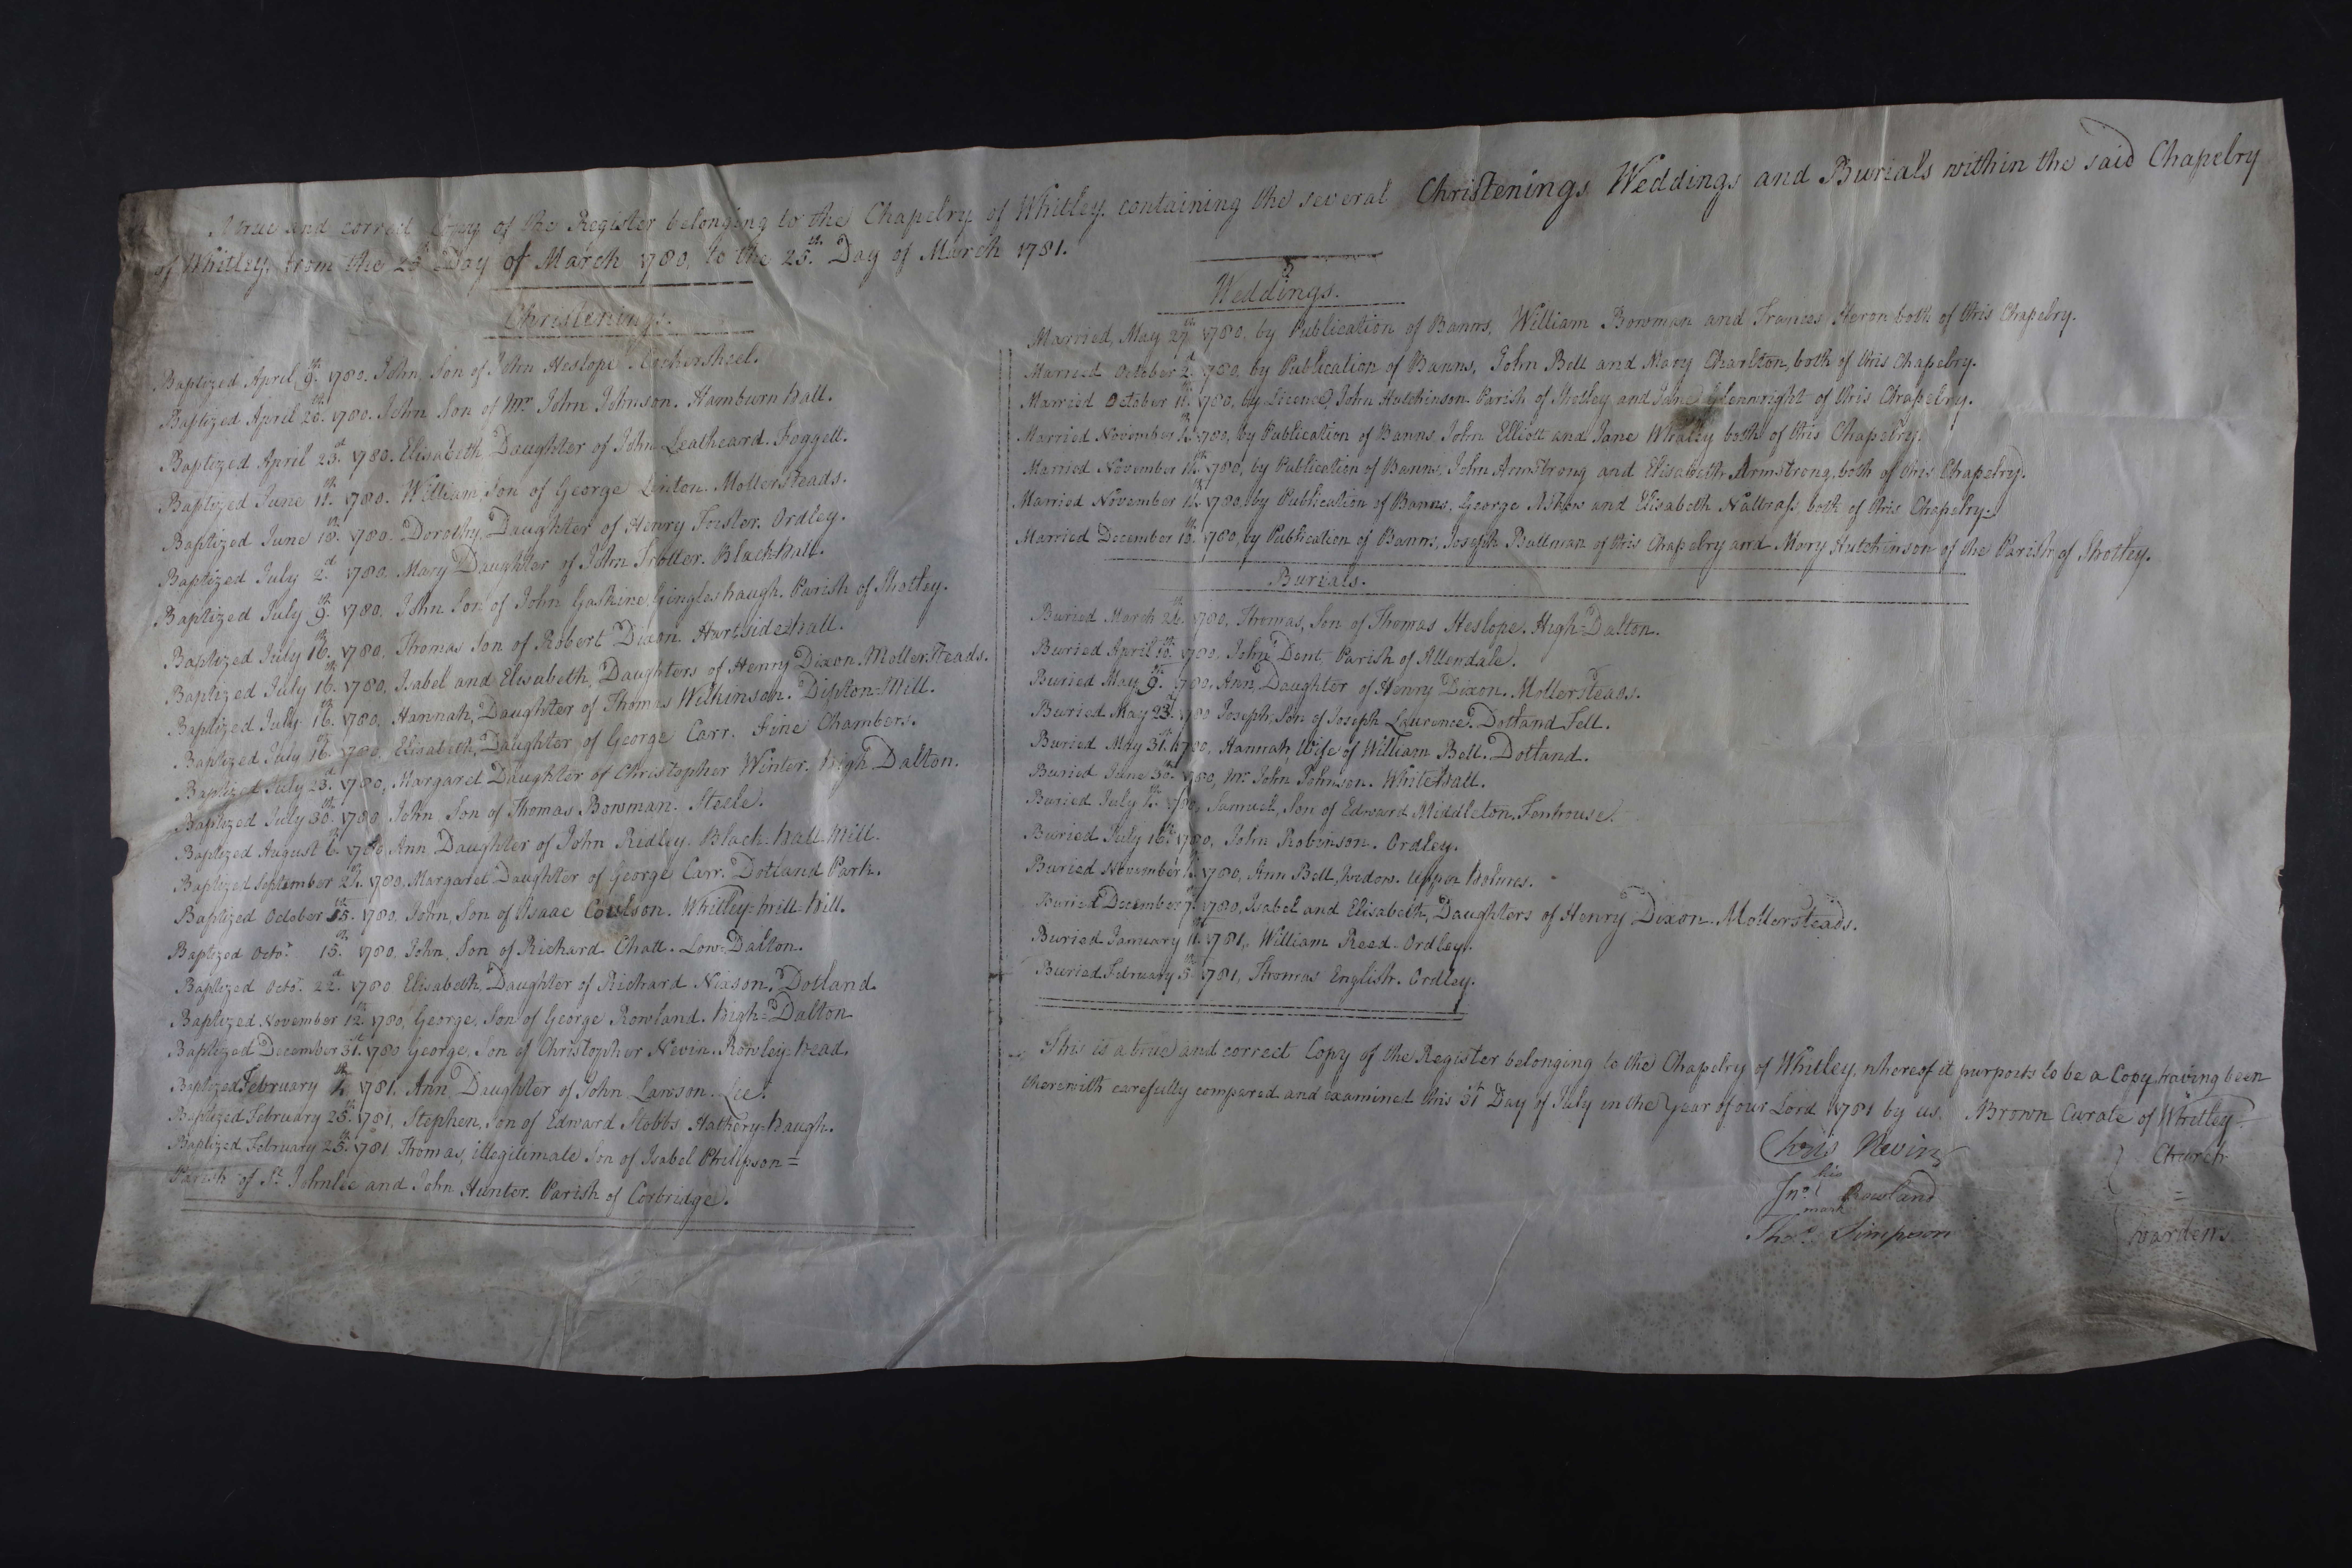 A true and correct Copy of the Register belonging to the Chapelry of Whitley, containing the several Christenings Weddings and Burials within the said Chapelry
of Whitley, from the 25th Day of March 1780, to the 25th Day of March 1781.
Christenings.
Baptized April 9th 1780. John, Son of John Heslope.
Baptized April 20th 1780. John Son of Mr John Johnson. Hamburn Hall.
Baptized April 23d 1780. Elisabeth Daughter of John Leatheard. Foggett.
Baptized June 11th 1780. William, Son of George Linton. Mollersteads.
Baptized June 18th 1780. Dorothy, Daughter of Henry Forster. Ordley.
Baptized July 2d 1780, Mary Daughter of John Trotter. Black-Hall.
Baptized July 9th 1780, John Son of John Gaskine, Gingleshaugh. Parish of Shotley.
Baptized July 16th 1780, Thomas Son of Robert Dixon. Hartside Hall.
Baptized July 16th 1780, Isabel and Elisabeth, Daughters of Henry Dixon. Mollersteads.
Baptized July 16th 1780, Hannah, Daughter of Thomas Wilkinson. Dipton=Mill.
Baptized July 16th 1780, Elisabeth, Daughter of George Carr. Fine Chambers.
Baptized July 23d 1780, Margaret Daughter of Christopher Winter. High Dalton.
Baptized July 30th 1780, John, Son of Thomas Bowman. Steele.
Baptized August 6th 1780, Ann Daughter of John Ridley. Black-Hall Mill.
Baptized September 1780, Margaret Daughter of George Carr. Dotland Park.
Baptized October 15th 1780, John, Son of Isaac Coulson. Whitley=Mill=Hill.
Baptized Octor 15th 1780, John, Son of Richard Chatt. Low=Dalton.
Baptized Octr 22d 1780 Elisabeth, Daughter of Richard Nixson. Dotland.
Baptized November 12th 1780, George, Son of George Rowland. High=Dalton.
Baptized December 31st 1780 George, Son of Christopher Nevin. Rowley=Head.
Baptized February 1781. Ann Daughter of John Lawson. Lee.
Baptized February 25th 1781, Stephen, Son of Edward Stobbs Hathery=Haugh.
Baptized February 25th 1781 Thomas, illegitimate Son of Isabel Philipson=
Parish of St Johnlee and John Hunter. Parish of Corbridge.
Weddings.
Married, May 27th 1780, by Publication of Banns, William Bowman and Frances Heron both of this Chapelry.
Married October 2d 1780, by Publication of Banns, John Bell and Mary Charlton, both of this Chapelry.
Married October 11th 1780, by Licence, John Hutchinson. Parish of Shotley and Jane Glenwright of this Chapelry.
Married November 1780, by Publication of Banns, John Elliott and Jane Whaley both of this Chapelry.
Married November 11th 1780, by Publication of Banns, John Armstrong and Elisabeth Armstrong, both of this Chapelry.
Married November 1780, by Publication of Banns, George Askew and Elisabeth Nattrass, both of this Chapelry.
Married December 1780, by Publication of Banns, Joseph Bullman of this Chapelry and Mary Hutchinson of the Parish of Shotley.
Burials.
Buried March 1780, Thomas, Son of Thomas Heslope. High=Dalton.
Buried April 10th 1780, John Dent Parish of Allendale.
Buried May 9th 1780, Ann, Daughter of Henry Dixon. Mollersteads.
Buried May 23d 1780 Joseph, Son of Joseph Laurence. Dotland Fell.
Buried May 31st 1780, Hannah, Wife of William Bell. Dotland.
Buried June 30th 1780, Mr John Johnson. White Hall.
Buried July 1780, Samuel, Son of Edward Middleton. Fenhouse.
Buried July 16th 1780, John Robinson. Ordley.
Buried November 1780, Ann Bell, Widow. Upper Holmes.
Buried December 7th 1780, Isabel and Elisabeth, Daughters of Henry Dixon. Mollersteads.
Buried January 11th 1781, William Reed. Ordley.
Buried February 5th 1781, Thomas English. Ordley.
This is a true and correct Copy of the Register belonging to the Chapelry of Whitley, whereof it purports to be a Copy, having been
therewith carefully compared and examined this 31st Day of July in the Year of our Lord 1781 by us, Brown Curate of Whitley.
Chris Nevin
his
Jno Rowland
mark
Thos Simpson
Church
=
wardens